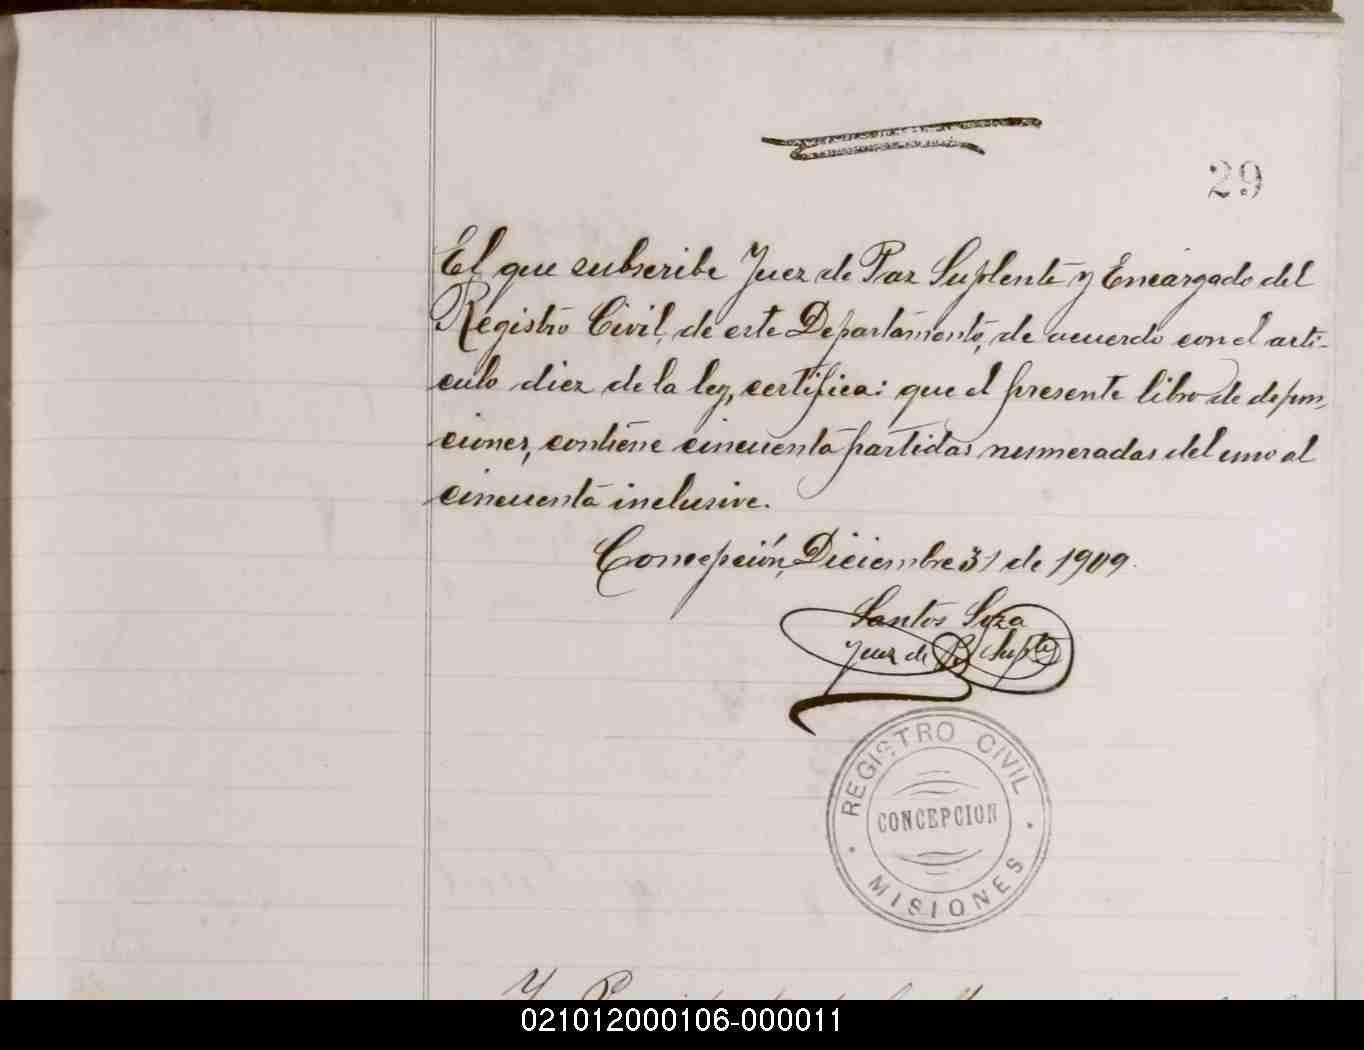 29
El que subscribe Juez de Paz Suplente y Encargado del
Registro Civil, de este Departamento, de acuerdo con el arti-
culo diez de la ley, certifica: que el presente libro de defun-
ciones, contiene cincuenta partidas numeradas del uno al
cincuenta inclusive.
Concepción, Diciembre 31 de 1909.
Santos Soza
Juez de Pz Suplte
REGISTRO CIVIL
CONCEPCION
MISIONES
021012000106-000011